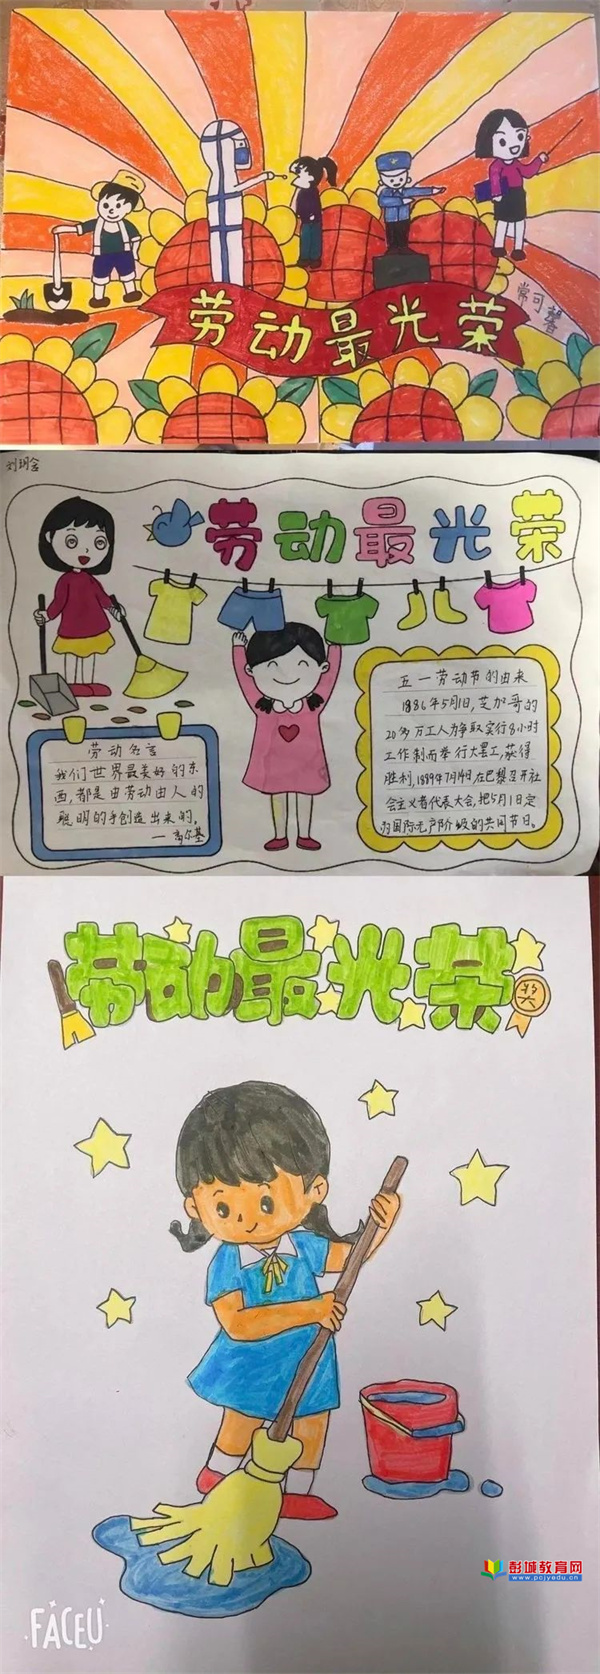 劳动最光荣
常可馨
刘玥含
劳动最光荣
五一劳动节的由来
1886年5月1日,芝加哥的
20多万工人为争取实行8小时
工作制而举行大罢工,获得
胜利,1889年7月14日在巴黎召开社
会主义者代表大会,把5月1日定
为国际无产阶级的共同节日。
劳动名言
我们世界最美好的东
西,都是由劳动由人的
聪明的手创造出来的。
—高尔基
劳动最光荣
奖
彭城教育网
www.pcjyedu.cn
FACEU